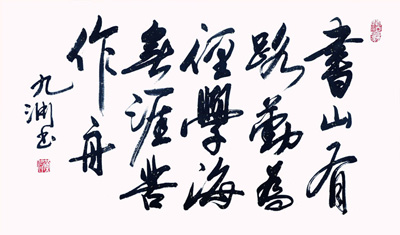 書山有
路勤為
徑學海
無涯苦
作舟
九淵书